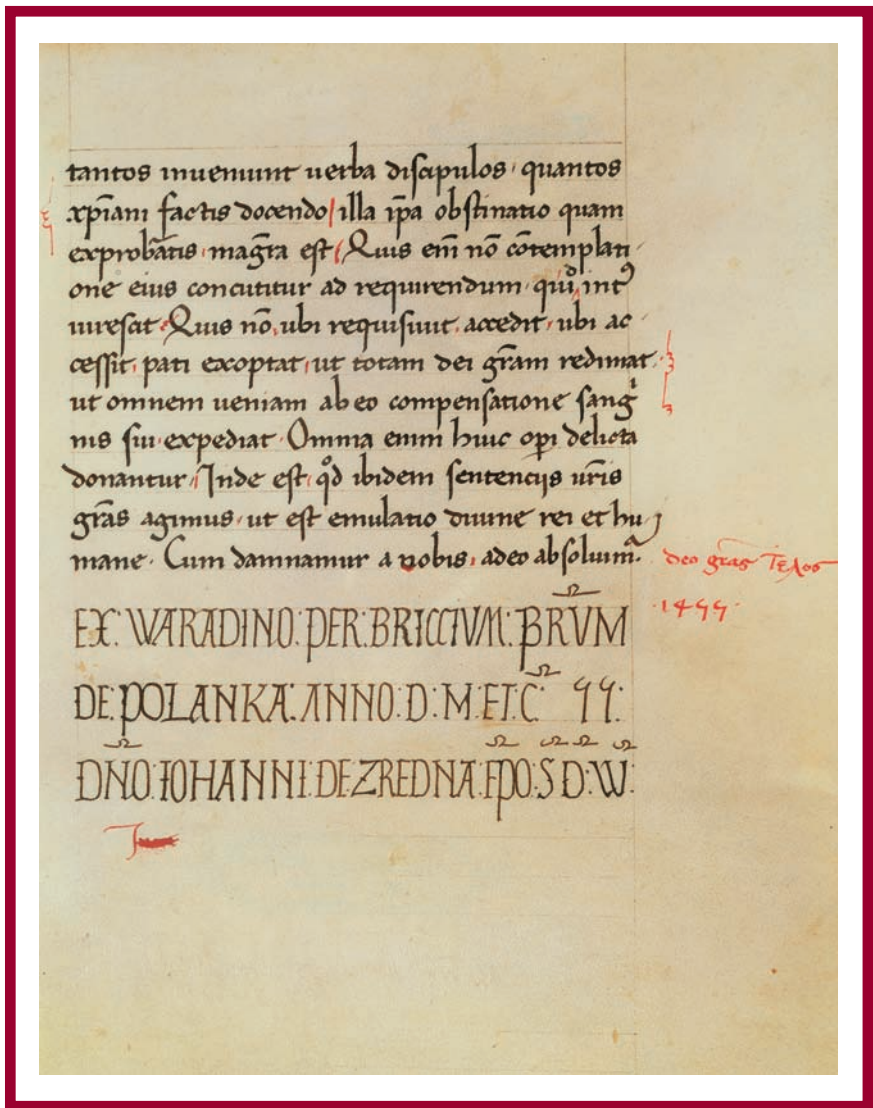 tantos inueniunt uerba discipulos · quantos
xp̅iani factis docendo / illa ip̅a obstinatio quam
exprobatis · magr̅a est / Quis em̅ no̅ co̅templati
one eius concutitur ad requirendum · quid int᷒
in re sit · Quis no̅ ubi requisiuit · accedit · ubi ac
cessit · pati exoptat · ut totam dei gr̅am redimat ·
ut omnem ueniam ab eo compensatione sang
nis sui expediat · Omnia enim huic op̅i delicta
donantur / Inde est · qd̅ ibidem sentencijs ur̅is
gr̅as agimus · ut est emulatio diuine rei et hu
mane · Cum damnamur a uobis · a deo absoluim̅ · deo gr̅as Τελοσ
EX : WARADINO : PER : BRICCIVM : BRVM · 1499 ·
DE : POLANKA : ANNO : D : M : ET : C̅ 99 :
DN̅O : IOHANNI : DE ZREDNA : EPO : S : D : W :